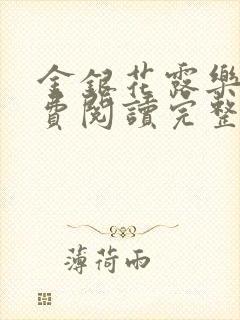 金銀花露樂
費閱讀完整
薄荷雨